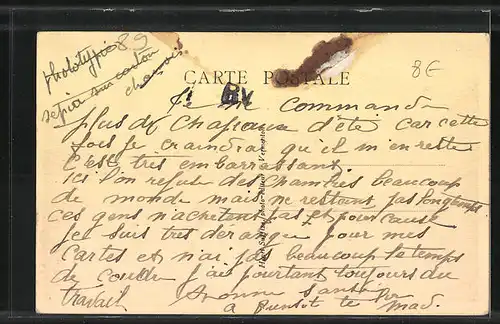 phototypie 89
sepia sur carton
chamois
8€
CARTE POSTALE
BV
Je commande
plus de chapeaux d'été car cette
fois je craindrai qu'il m'en reste
c'est tres embarrassant
Ici l'on refuse des chambres beaucoup
de monde mais ne restant pas longtemps
ces gens n'achetent pas et pour cause
Je suis tres derangée pour mes
cartes et n'ai pas beaucoup le temps
de coudre j'ai pourtant toujours du
travail Bonne santé
a bientot te Mad.